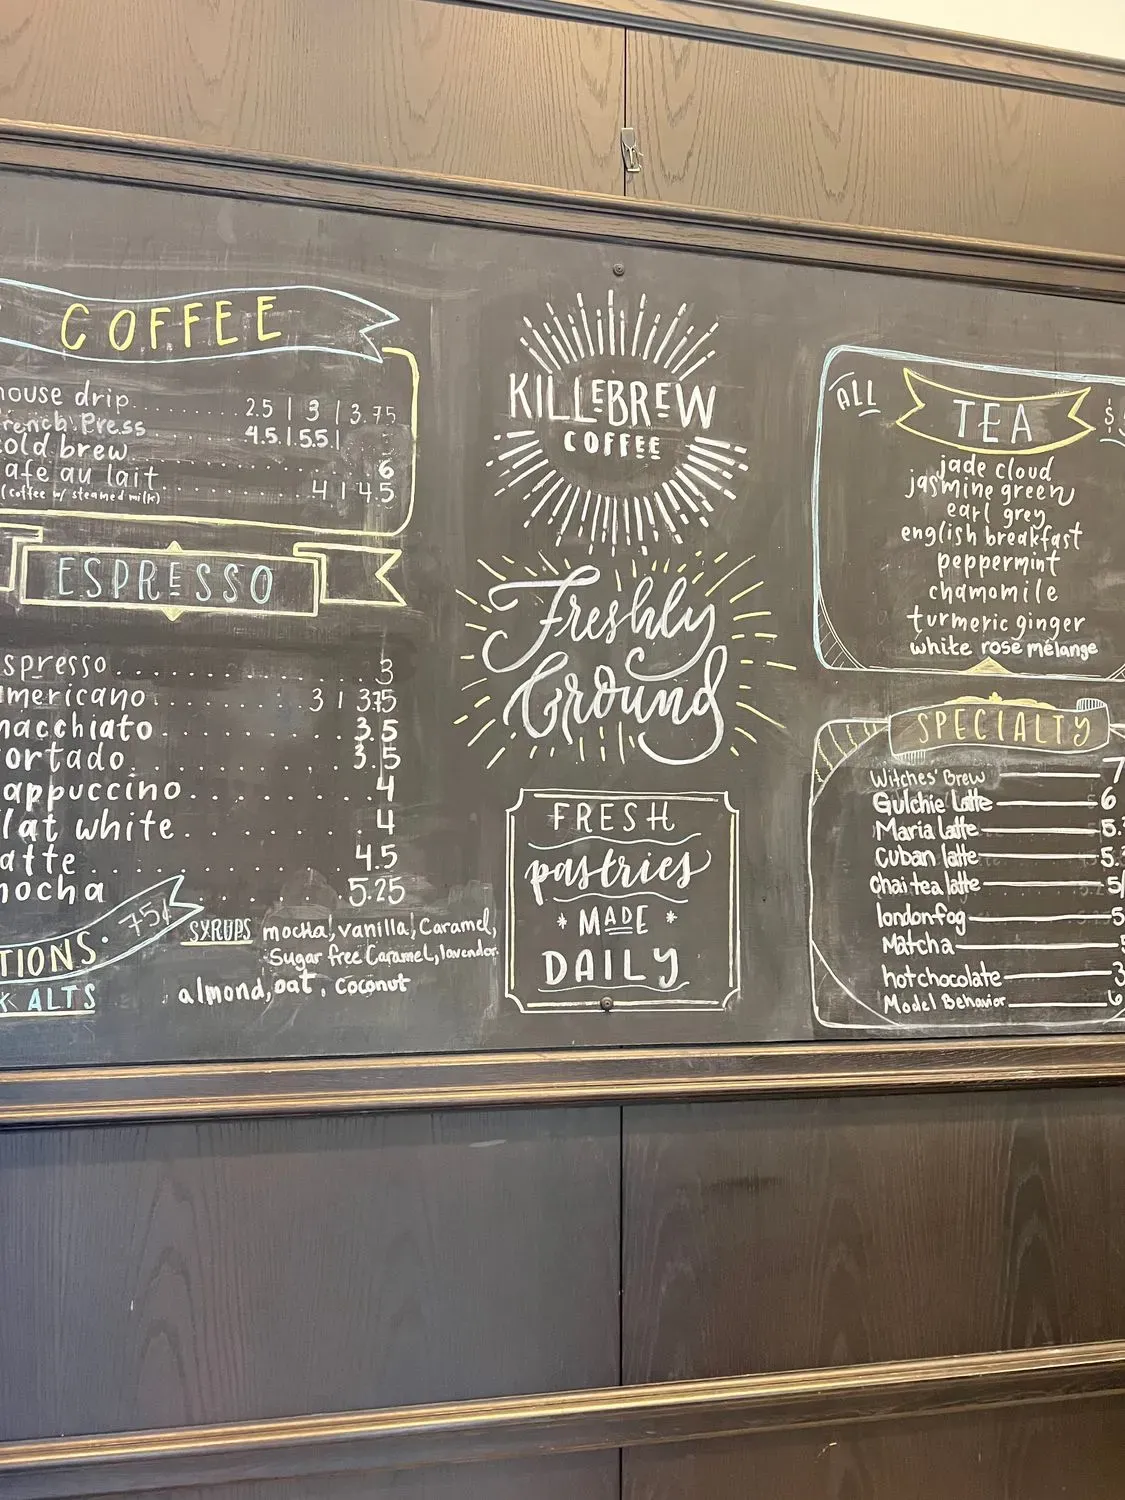 COFFEE
house drip 2.5 | 3 | 3.75
French Press 4.5 | 5.5 |
cold brew 6
cafe au lait 4 | 4.5
(coffee w/ steamed milk)
ESPRESSO
espresso 3
americano 3 | 3.75
macchiato 3.5
cortado 3.5
cappuccino 4
flat white 4
latte 4.5
mocha 5.25
TIONS. 75¢
SYRUPS mocha, vanilla, Caramel,
Sugar free Caramel, lavendar
K ALTS almond, oat, coconut
KILLEBREW
COFFEE
Freshly
Ground
FRESH
pastries
* MADE *
DAILY
ALL TEA $
jade cloud
jasmine green
earl grey
english breakfast
peppermint
chamomile
turmeric ginger
white rose mélange
SPECIALTY
Witches' Brew 7
Gulchie Latte 6
Maria latte 5.
Cuban latte 5.
chai tea latte 5/
london fog 5
Matcha
hot chocolate 3
Model Behavior 6